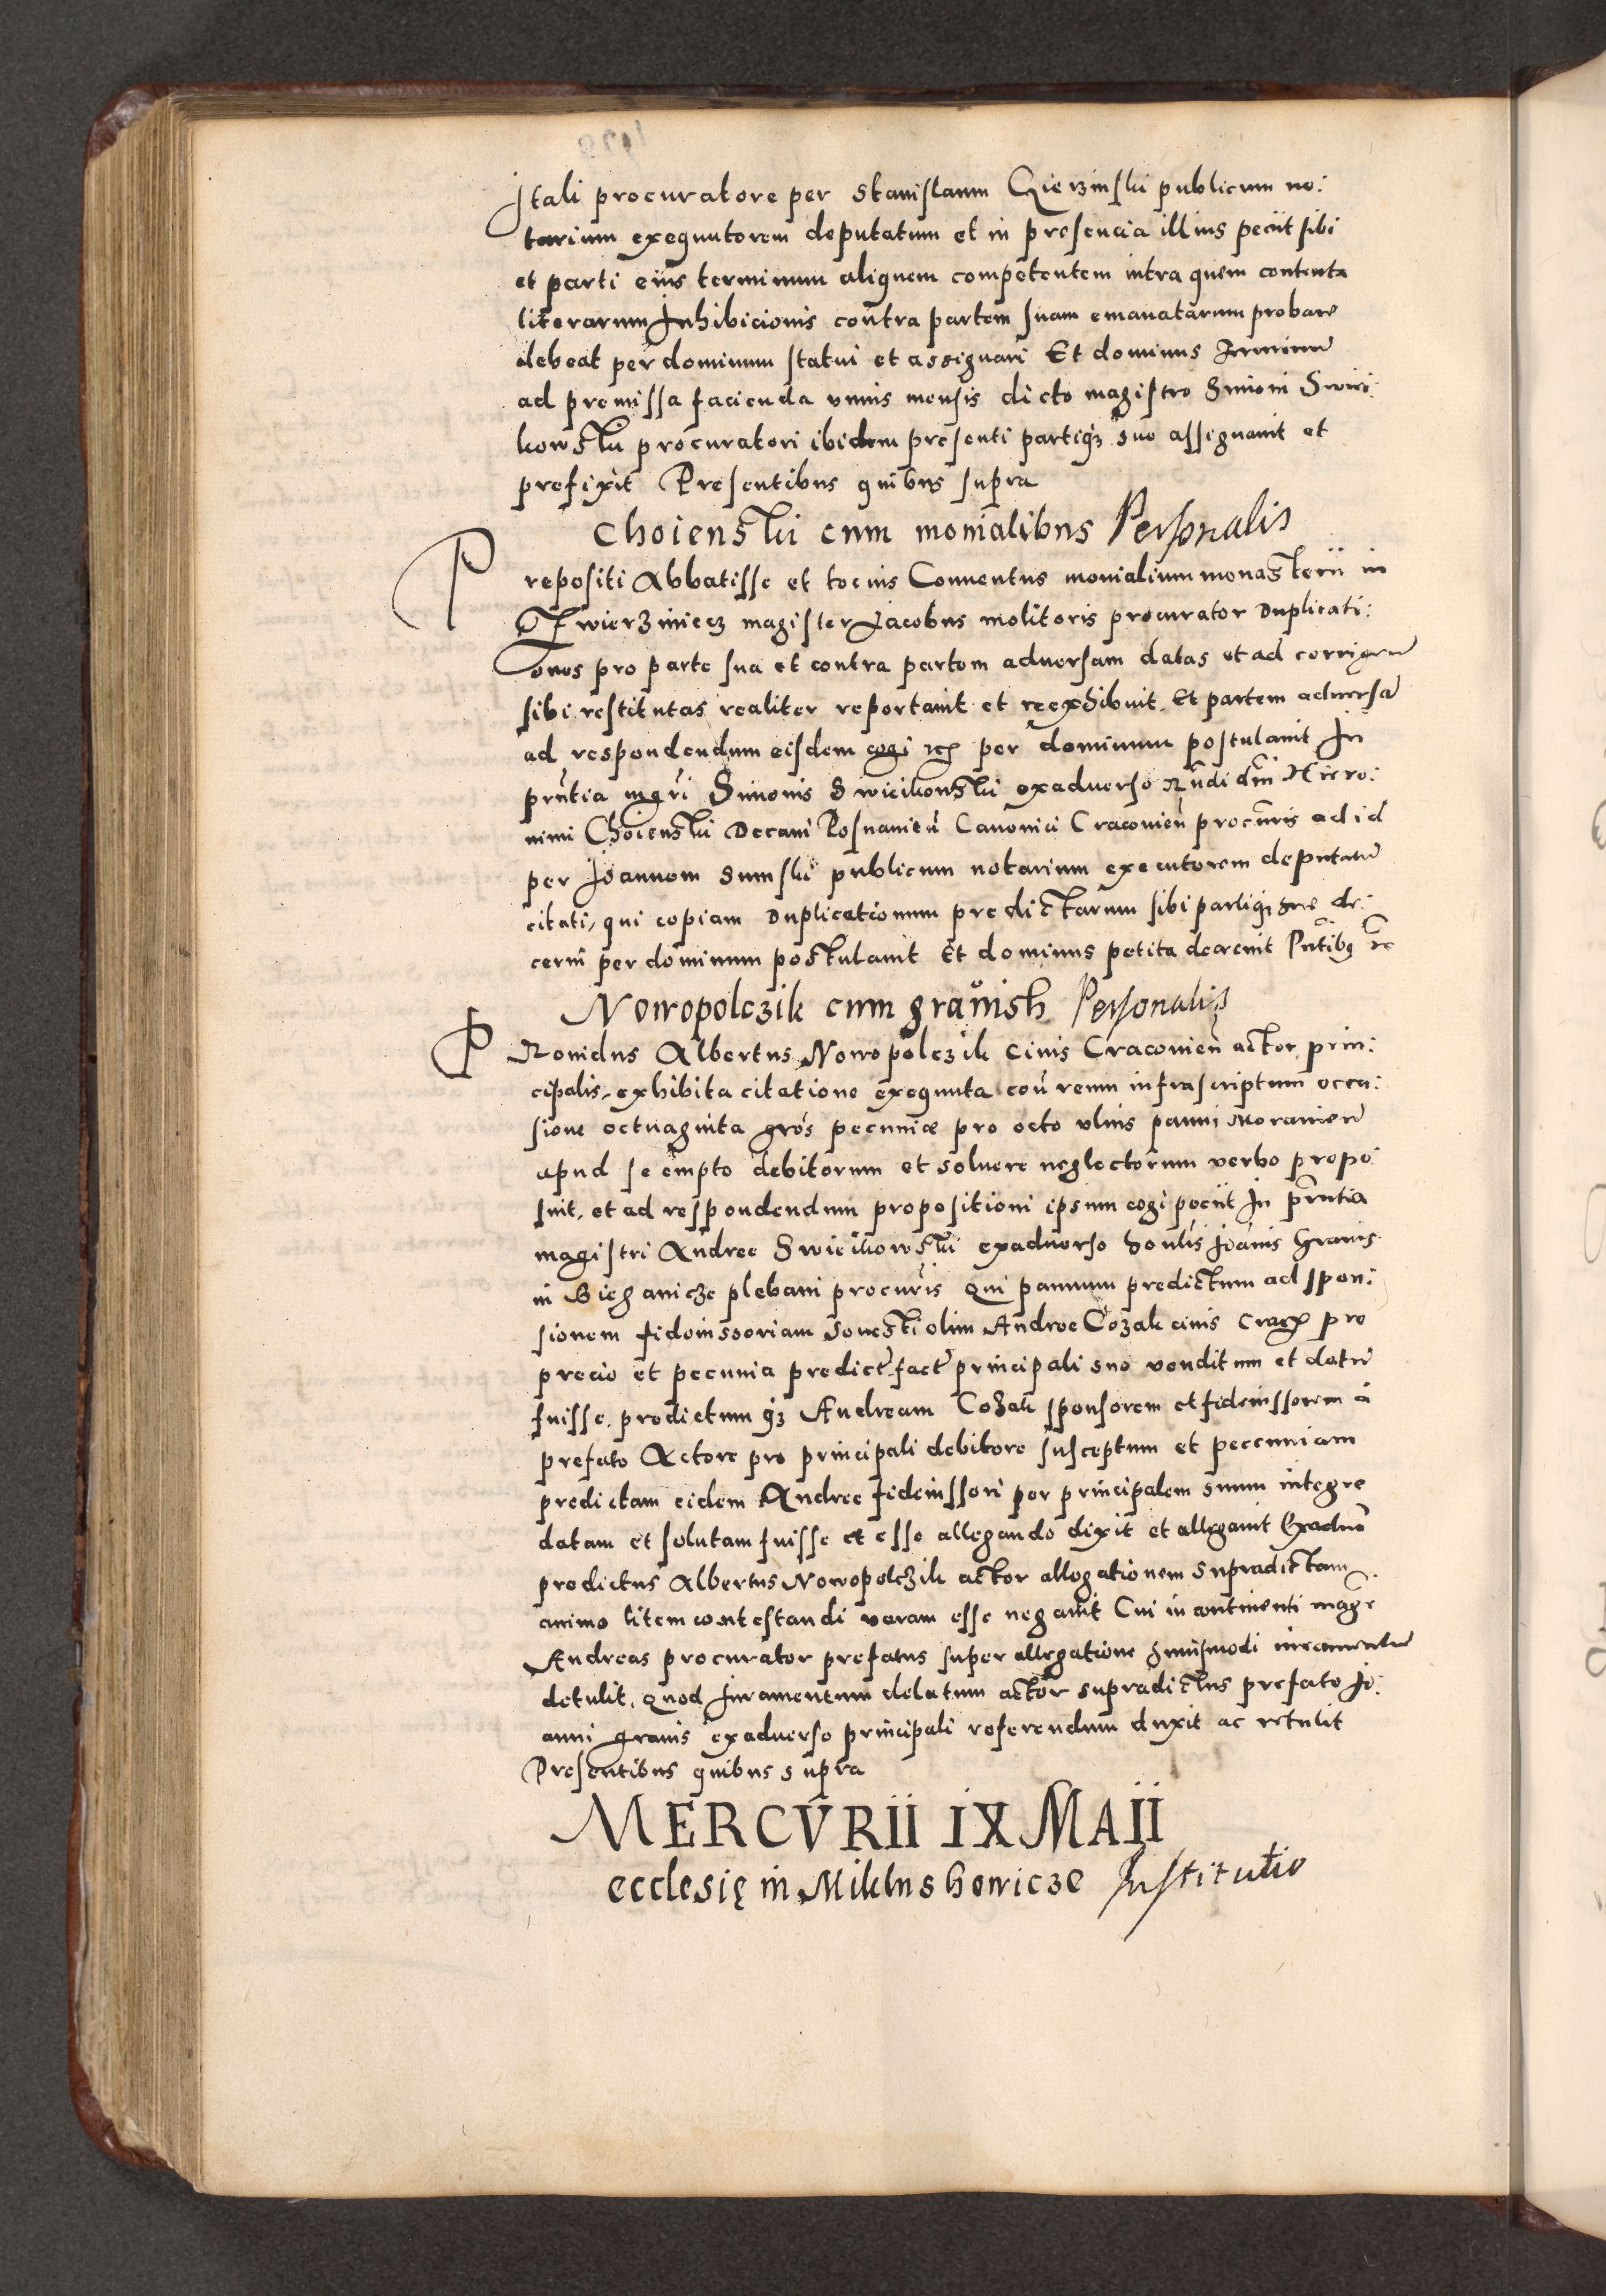 stali procuratore per Stanislaum Gierzinski publicum no:
tarium exequutorem deputatum et in presencia illius peciit sibi
et parti eius terminum aliquem competentem intra quem contenta
literarum Inhibicionis contra partem suam emanatarum probare
debeat per dominum statui et assignari Et dominus terminum
ad premissa facienda unius mensis dicto magistro Simoni Swiei:
kowski procuratori ibidem presenti partiqz sue assignavit et
prefixit Presentibus quibus supra
Choienski cum monialibus Personalis
Prepositi Abbatisse et tocius Conventus monialium monasterii in
Zwierziniecz magister Jacobus molitoris procurator duplicati:
ones pro parte sua et contra partem adversam datas et ad corrigend
sibi restitutas realiter reportavit et reexhibuit Et partem adversā
ad respondendum eisdem cogi per dominum postulavit In
pñtia mgri Simonis Swieikowski exadverso Rndi dni Hiero:
nimi Choienski Decani Posnanieñ Canonici Cracovieñ procuris ad id
per Joannem Sumski publicum notarium executorem deputatū
citati, qui copiam duplicationum predictarum sibi partiqz sue de:
cerni per dominum postulavit Et dominus petita decrevit Pntibus
Nowopolczik cum gravish Personalis
Providus Albertus Nowopolczik Civis Cracovieñ actor prin:
cipalis, exhibita citatione exequuta coñ reum infrascriptum occa:
sione octuaginta gros pecuniæ pro octo ulnis panni Moravien
apud se empto debitorum et solvere neglectorum verbo propo:
suit, et ad respondendum propositioni ipsum cogi peciit In pñtia
magistri Andree Swieikowski exadverso honlis Joanis Gravis
in Bieganicze plebani procuris Qui pannum predictum ad spon:
sionem fideiussoriam honesti olim Andree Cozak civis Crac pro
precio et pecunia predict fact principali suo venditum et datū
fuisse, predictum qz Andream Cozak sponsorem et fideiussorem à
prefato Actore pro principali debitore susceptum et peccuniam
predictam eidem Andree fideiussori per principalem suum integre
datam et solutam fuisse et esse allegando dixit et allegavit Exadvo
predictus Albertus Nowopolczik actor allegationem supradictam
animo litem contestandi veram esse negavit Cui in continenti magr
Andreas procurator prefatus super allegatione huiusmodi iuramentū
detulit, quod Iuramentum delatum actor supradictus prefato Jo:
anni gravis exadverso principali referendum duxit ac retulit
Presentibus quibus supra
MERCVRII IX MAII
ecclesię in Miklushowicze Institutio